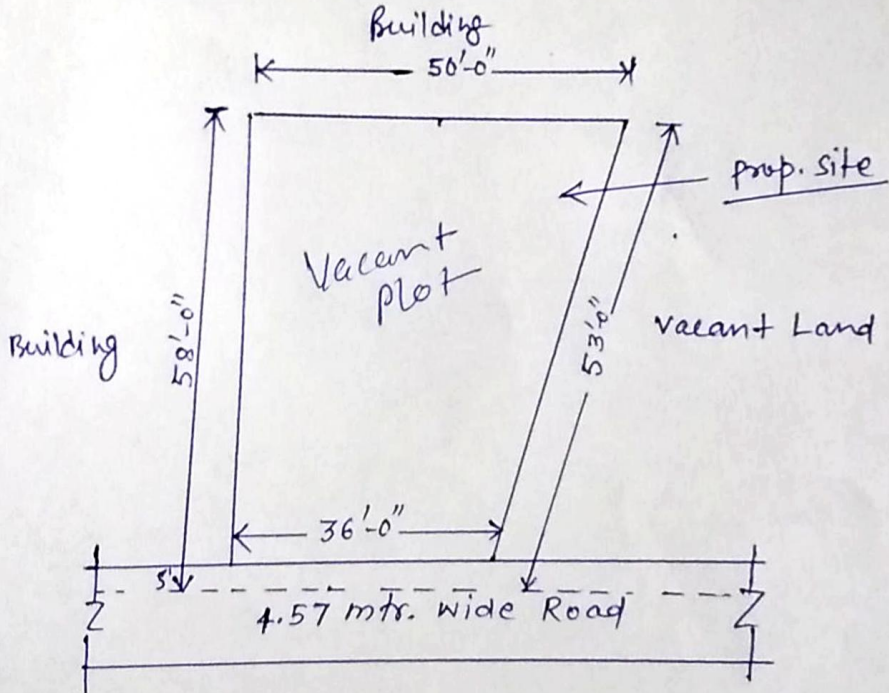 Building
50'-0"
Prop. site
Vacant
Plot
Building
58'-0"
53'-0"
Vacant Land
36'-0"
5'
4.57 mtr. wide Road